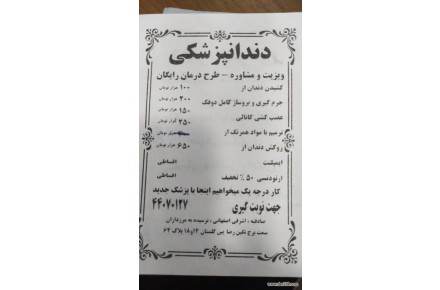 دندانپزشکی
ویزیت و مشاوره - طرح درمان رایگان
کشیدن دندان از ۱۰۰ هزار تومان
جرم گیری و بروساژ کامل دوفک ۲۰۰ هزار تومان
عصب کشی کانالی ۱۵۰ هزار تومان
ترمیم با مواد همرنگ از ۲۵۰ هزار تومان
روکش دندان از ۶۵۰ هزار تومان
ایمپلنت اقساطی
ارتودنسی ۵۰٪ تخفیف اقساطی
کار درجه یک میخواهیم اینجا با پزشک جدید
جهت نوبت گیری ۴۴۰۷۰۱۲۷
صادقیه ، اشرفی اصفهانی ، نرسیده به مرزداران
سمت برج نگین رضا بین گلستان ۱۶و۱۸ پلاک ۶۴